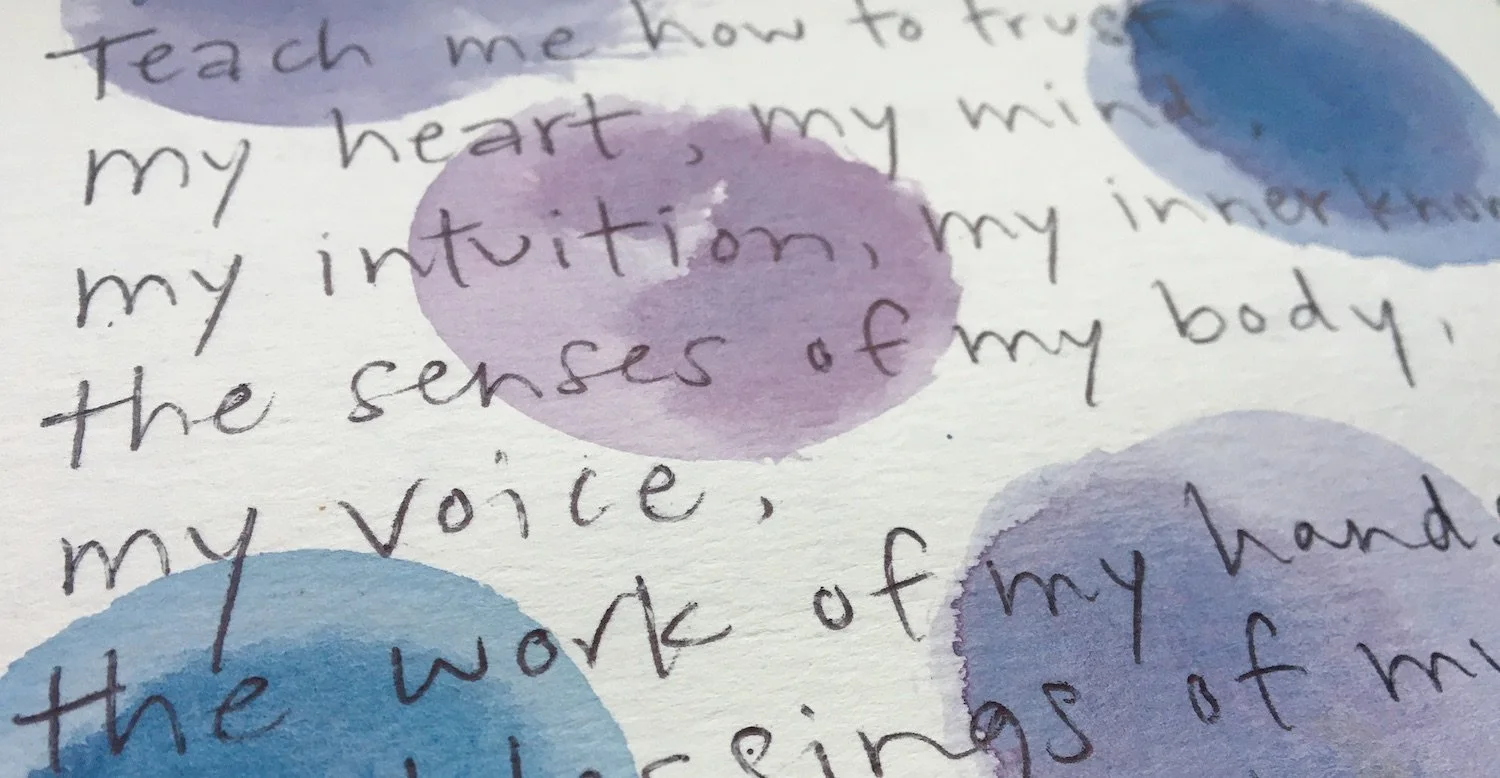 Teach me how to trust
my heart, my mind,
my intuition, my inner know
the senses of my body,
my voice,
the work of my hands
of my